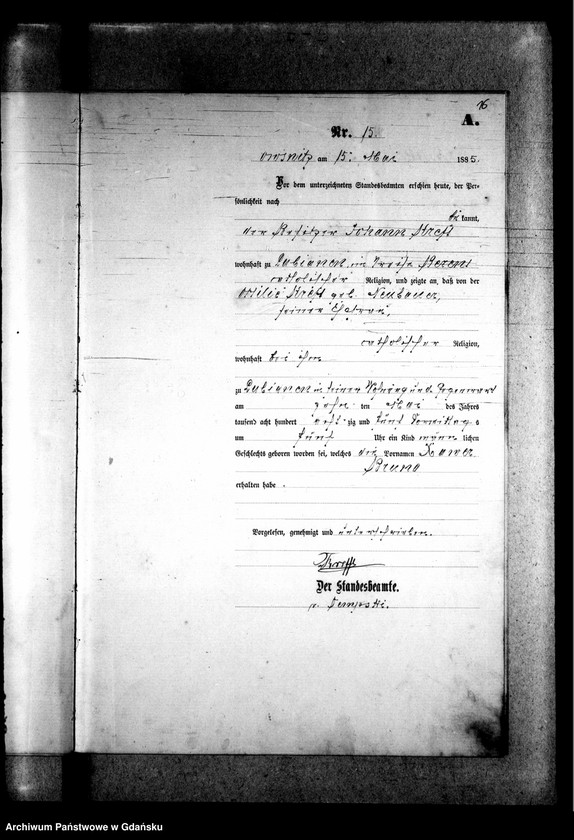 16
A.
Nr. 15.
am 15. Mai 1885.
Vor dem unterzeichneten Standesbeamten erschien heute, der Per-
sönlichkeit nach
be kannt,
der Besitzer Johann Kreft
wohnhaft zu Lubianen im Kreise Berent
catholischer Religion, und zeigte an, daß von der
Ottilie Kreft geb. Neubauer,
seiner Ehefrau,
catholischer Religion,
wohnhaft bei ihm
zu Lubianen in seiner Wohnung und Gegenwart
am zehn ten Mai des Jahres
tausend acht hundert acht zig und fünf Vormittag s
um fünf Uhr ein Kind männ lichen
Geschlechts geboren worden sei, welches die Vornamen Xaver
Bruno
erhalten habe .
Vorgelesen, genehmigt und unterschrieben.
Krefft
Der Standesbeamte.
Archiwum Państwowe w Gdańsku